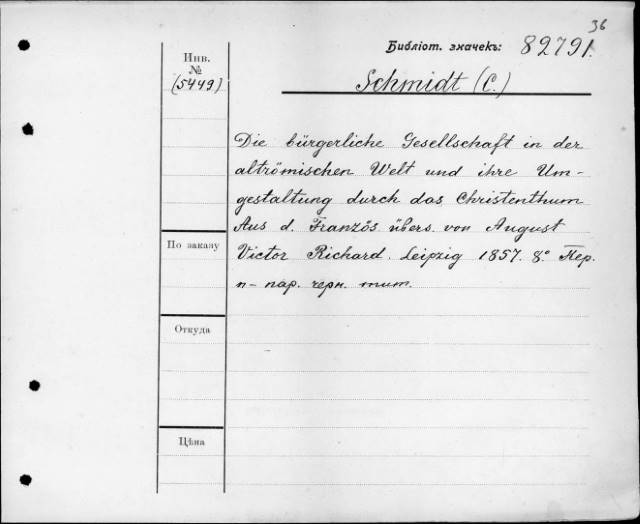 36
Библіот. значекъ: 82791.
Инв.
№
(5449)
Schmidt (C.)
Die bürgerliche Gesellschaft in der
altrömischen Welt und ihre Um-
gestaltung durch das Christenthum
Aus d. Französ. übers. von August
По заказу
Victor Richard. Leipzig 1857. 8.° Пер.
п-пар. черн. тит.
Откуда
Цѣна